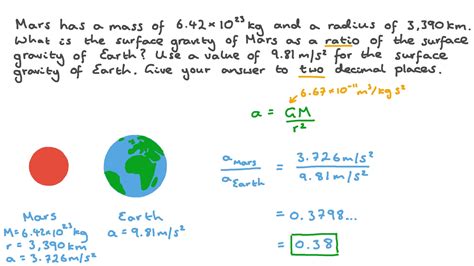 Mars has a mass of 6.42×10²³ kg and a radius of 3,390 km.
What is the surface gravity of Mars as a ratio of the surface
gravity of Earth? Use a value of 9.81 m/s² for the surface
gravity of Earth. Give your answer to two decimal places.
6.67×10⁻¹¹ m³/kg s²
a = GM/r²
a Mars / a Earth = 3.726 m/s² / 9.81 m/s²
= 0.3798...
= 0.38
Mars
M=6.42×10²³ kg
r = 3,390 km
a = 3.726 m/s²
Earth
a = 9.81 m/s²